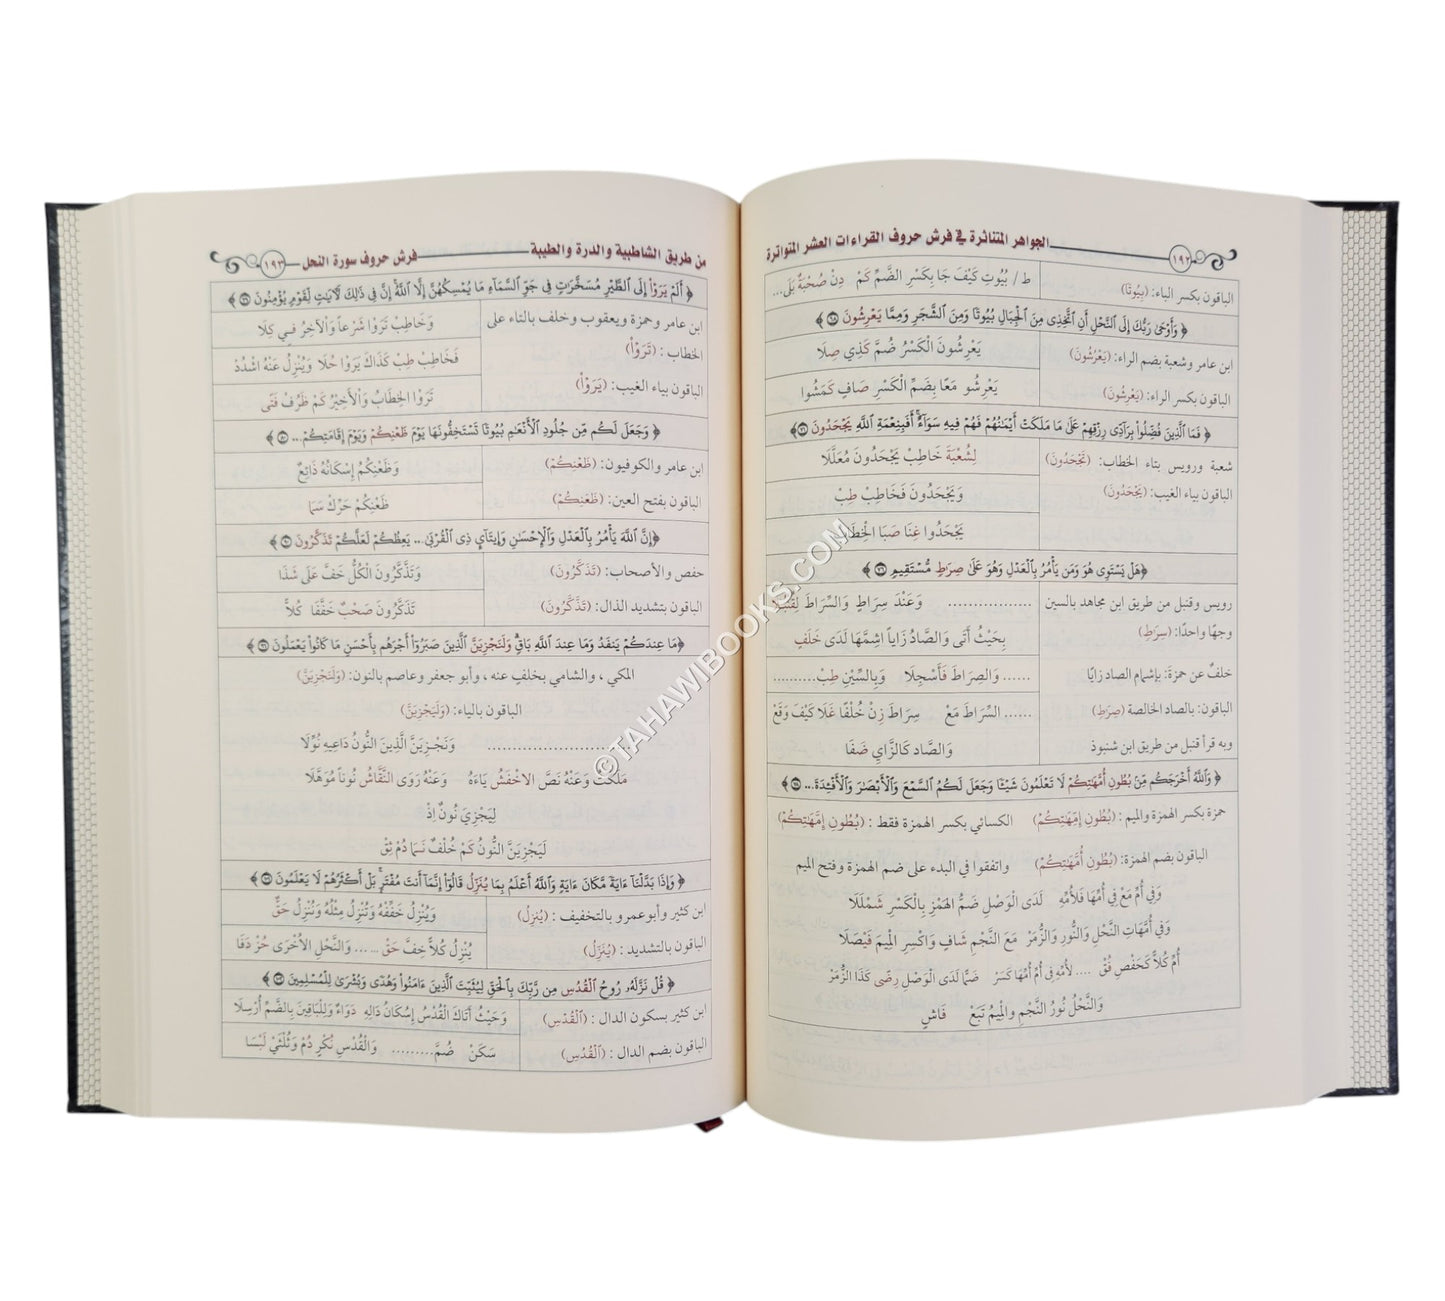 ١٩٢ الجواهر المتناثرة في فرش حروف القراءات العشر المتواترة
الباقون بكسر الباء: (بِيُوتًا) ط / بُيُوتِ كَيْفَ جَا بِكَسْرِ الضَّمِّ كَمْ دِنْ صُحْبَةٌ بَلَى...
﴿ وَأَوْحَىٰ رَبُّكَ إِلَى ٱلنَّحْلِ أَنِ ٱتَّخِذِى مِنَ ٱلْجِبَالِ بُيُوتًا وَمِنَ ٱلشَّجَرِ وَمِمَّا يَعْرِشُونَ ٦٨ ﴾
ابن عامر وشعبة بضم الراء: (يَعْرُشُونَ) يَعْرِشُونَ الْكَسْرُ ضُمَّ كَذِي صِلَا
الباقون بكسر الراء: (يَعْرِشُونَ) يَعْرِشُو مَعًا بِضَمِّ الْكَسْرِ صَافٍ كَمَشُوا
﴿ فَمَا ٱلَّذِينَ فُضِّلُوا۟ بِرَآدِّى رِزْقِهِمْ عَلَىٰ مَا مَلَكَتْ أَيْمَٰنُهُمْ فَهُمْ فِيهِ سَوَآءٌ أَفَبِنِعْمَةِ ٱللَّهِ يَجْحَدُونَ ٧١ ﴾
شعبة ورويس بتاء الخطاب: (تَجْحَدُونَ) لِشُعْبَةَ خَاطِبْ يَجْحَدُونَ مُعَلَّلَا
الباقون بياء الغيب: (يَجْحَدُونَ) وَيَجْحَدُونَ فَخَاطِبْ طِبْ
يَجْحَدُوا غِنَا صَبَا الْخِطَابُ
﴿هَلْ يَسْتَوِى هُوَ وَمَن يَأْمُرُ بِٱلْعَدْلِ وَهُوَ عَلَىٰ صِرَٰطٍ مُّسْتَقِيمٍ ٧٦ ﴾
رويس وقنبل من طريق ابن مجاهد بالسين ................ وَعَنْدَ سِرَاطِ وَالسِّرَاطَ لِقُنْبُلَا
وجهًا واحدًا: (سِرَاطٍ) بِحَيْثُ أَتَى وَالصَّادُ زَاياً اشِمَّهَا لَدَى خَلَفٍ
خلفٌ عن حمزة: بإشمام الصاد زايًا ...... وَالصِرَاطَ فَأَسْجِلَا وَبِالسِّيْنِ طِبْ..........
الباقون: بالصاد الخالصة (صِرَٰطٍ) ...... السِّرَاطَ مَعْ سِرَاطَ زِنْ خُلْفًا غَلَا كَيْفَ وَقَعْ
وبه قرأ قنبل من طريق ابن شنبوذ وَالصَّاد كَالزَّايِ ضَفَا
﴿ وَٱللَّهُ أَخْرَجَكُم مِّنۢ بُطُونِ أُمَّهَٰتِكُمْ لَا تَعْلَمُونَ شَيْـًٔا وَجَعَلَ لَكُمُ ٱلسَّمْعَ وَٱلْأَبْصَٰرَ وَٱلْأَفْـِٔدَةَ... ٧٨ ﴾
حمزة بكسر الهمزة والميم : (بُطُونِ إِمِّهَٰتِكُمْ) الكسائي بكسر الهمزة فقط : (بُطُونِ إِمَّهَٰتِكُمْ)
الباقون بضم الهمزة: (بُطُونِ أُمَّهَٰتِكُمْ) واتفقوا في البدء على ضم الهمزة وفتح الميم
وَفِي أُمِّ مَعْ فِي أُمِّهَا فَلأُمِّهِ لَدَى الْوَصْلِ ضَمُّ الهَمْزِ بِالْكَسْرِ شَمْلَلَا
وَفِي أُمَّهَاتِ النَّحْلِ وَالنُّورِ وَالزُّمَرْ مَعَ النَّجْمِ شَافٍ وَاكْسِرِ الْمِيمَ فَيْصَلَا
أُمِّ كُلاًّ كَحَفْصٍ فُقْ .... لأُمِّهِ فِي أُمِّ أُمِّهَا كَسَرْ ضَمًّا لَدَى الْوَصْلِ رِضًى كَذَا الزُّمَرْ
وَالنَّحْلُ نُورُ النَّجْمِ وَالمِيمُ تَبَعْ فَاشٍ
من طريق الشاطبية والدرة والطيبة فرش حروف سورة النحل ١٩٣
﴿ أَلَمْ يَرَوْا۟ إِلَى ٱلطَّيْرِ مُسَخَّرَٰتٍ فِى جَوِّ ٱلسَّمَآءِ مَا يُمْسِكُهُنَّ إِلَّا ٱللَّهُ إِنَّ فِى ذَٰلِكَ لَءَايَٰتٍ لِّقَوْمٍ يُؤْمِنُونَ ٧٩ ﴾
ابن عامر وحمزة ويعقوب وخلف بالتاء على وَخَاطِبْ تَرَوْا شَرْعاً وَالْآخِرُ فِي كِلَا
الخطاب : (تَرَوْا۟) فَخَاطِبْ طِبْ كَذَاكَ يَرَوْا حُلَا وَيُنْزِلُ عَنْهُ اشْدُدْ
الباقون بياء الغيب: (يَرَوْا۟) تَرَوْا الخِطَابُ وَالْأَخِيْرُ كَمْ ظَرُفْ فَتًى
﴿ وَجَعَلَ لَكُم مِّن جُلُودِ ٱلْأَنْعَٰمِ بُيُوتًا تَسْتَخِفُّونَهَا يَوْمَ ظَعْنِكُمْ وَيَوْمَ إِقَامَتِكُمْ... ٨٠ ﴾
ابن عامر والكوفيون: (ظَعْنِكُمْ) وَظَعْنِكُمُ إِسْكَانُهُ ذَائِعٌ
الباقون بفتح العين: (ظَعَنِكُمْ) ظَعْنِكُمْ حَرِّكْ سَمَا
﴿إِنَّ ٱللَّهَ يَأْمُرُ بِٱلْعَدْلِ وَٱلْإِحْسَٰنِ وَإِيتَآئِ ذِى ٱلْقُرْبَىٰ .. يَعِظُكُمْ لَعَلَّكُمْ تَذَكَّرُونَ ٩٠ ﴾
حفص والأصحاب: (تَذَكَّرُونَ) وَتَذَّكَّرُونَ الْكُلُّ خَفَّ عَلَى شَذَا
الباقون بتشديد الذال: (تَذَّكَّرُونَ) تَذَكَّرُونَ صَحْبُ خَفَّفَا كُلاًّ
﴿مَا عِندَكُمْ يَنفَدُ وَمَا عِندَ ٱللَّهِ بَاقٍ وَلَنَجْزِيَنَّ ٱلَّذِينَ صَبَرُوٓا۟ أَجْرَهُم بِأَحْسَنِ مَا كَانُوا۟ يَعْمَلُونَ ٩٦ ﴾
المكي ، والشامي بخلفٍ عنه ، وأبو جعفر وعاصم بالنون: (وَلَنَجْزِيَنَّ)
الباقون بالياء: (وَلَيَجْزِيَنَّ)
........................ وَنَجْزِيَنَّ الَّذِينَ النُّونُ دَاعِيهِ نُوِّلَا
مَلَكْتَ وَعَنْهُ نَصَّ الاخْفَشُ يَاءَهُ وَعَنْهُ رَوَى النَّقَّاشُ نُوناً مُوَهَّلَا
لِيَجْزِيَ نُونٌ اِذْ
لَيَجْزِيَنَّ النُّونُ كَمْ خُلْفٌ نَمَا دُمْ ثِقْ
﴿ وَإِذَا بَدَّلْنَآ ءَايَةً مَّكَانَ ءَايَةٍ وَٱللَّهُ أَعْلَمُ بِمَا يُنَزِّلُ قَالُوٓا۟ إِنَّمَآ أَنتَ مُفْتَرٍۭ بَلْ أَكْثَرُهُمْ لَا يَعْلَمُونَ ١٠١ ﴾
ابن كثير وأبو عمرو بالتخفيف : (يُنزِلُ) وَيُنْزِلُ خَفِّفْهُ وَتُنْزِلُ مِثْلُهُ وَنُنْزِلُ حَقٌّ
الباقون بالتشديد : (يُنَزِّلُ) يُنْزِلُ كُلاًّ خِفَّ حَقْ ..... وَالنَّحْلِ الأُخْرَى حُزْ دَفَا
﴿ قُلْ نَزَّلَهُۥ رُوحُ ٱلْقُدُسِ مِن رَّبِّكَ بِٱلْحَقِّ لِيُثَبِّتَ ٱلَّذِينَ ءَامَنُوا۟ وَهُدًى وَبُشْرَىٰ لِلْمُسْلِمِينَ ١٠٢ ﴾
ابن كثير بسكون الدال : (ٱلْقُدْسِ) وَحَيْثُ أَتَاكَ الْقُدْسُ إِسْكَانُ دَالِهِ دَوَاءٌ وَلِلْبَاقِينَ بِالضَّمِّ أُرْسِلَا
الباقون بضم الدال : (ٱلْقُدُسِ) سَكَنْ ضُمَّ......... وَالْقُدْسِ نُكْرٍ دُمْ وَثُلْثَيْ لَبِسَا
©TAHAWIBOOKS.COM